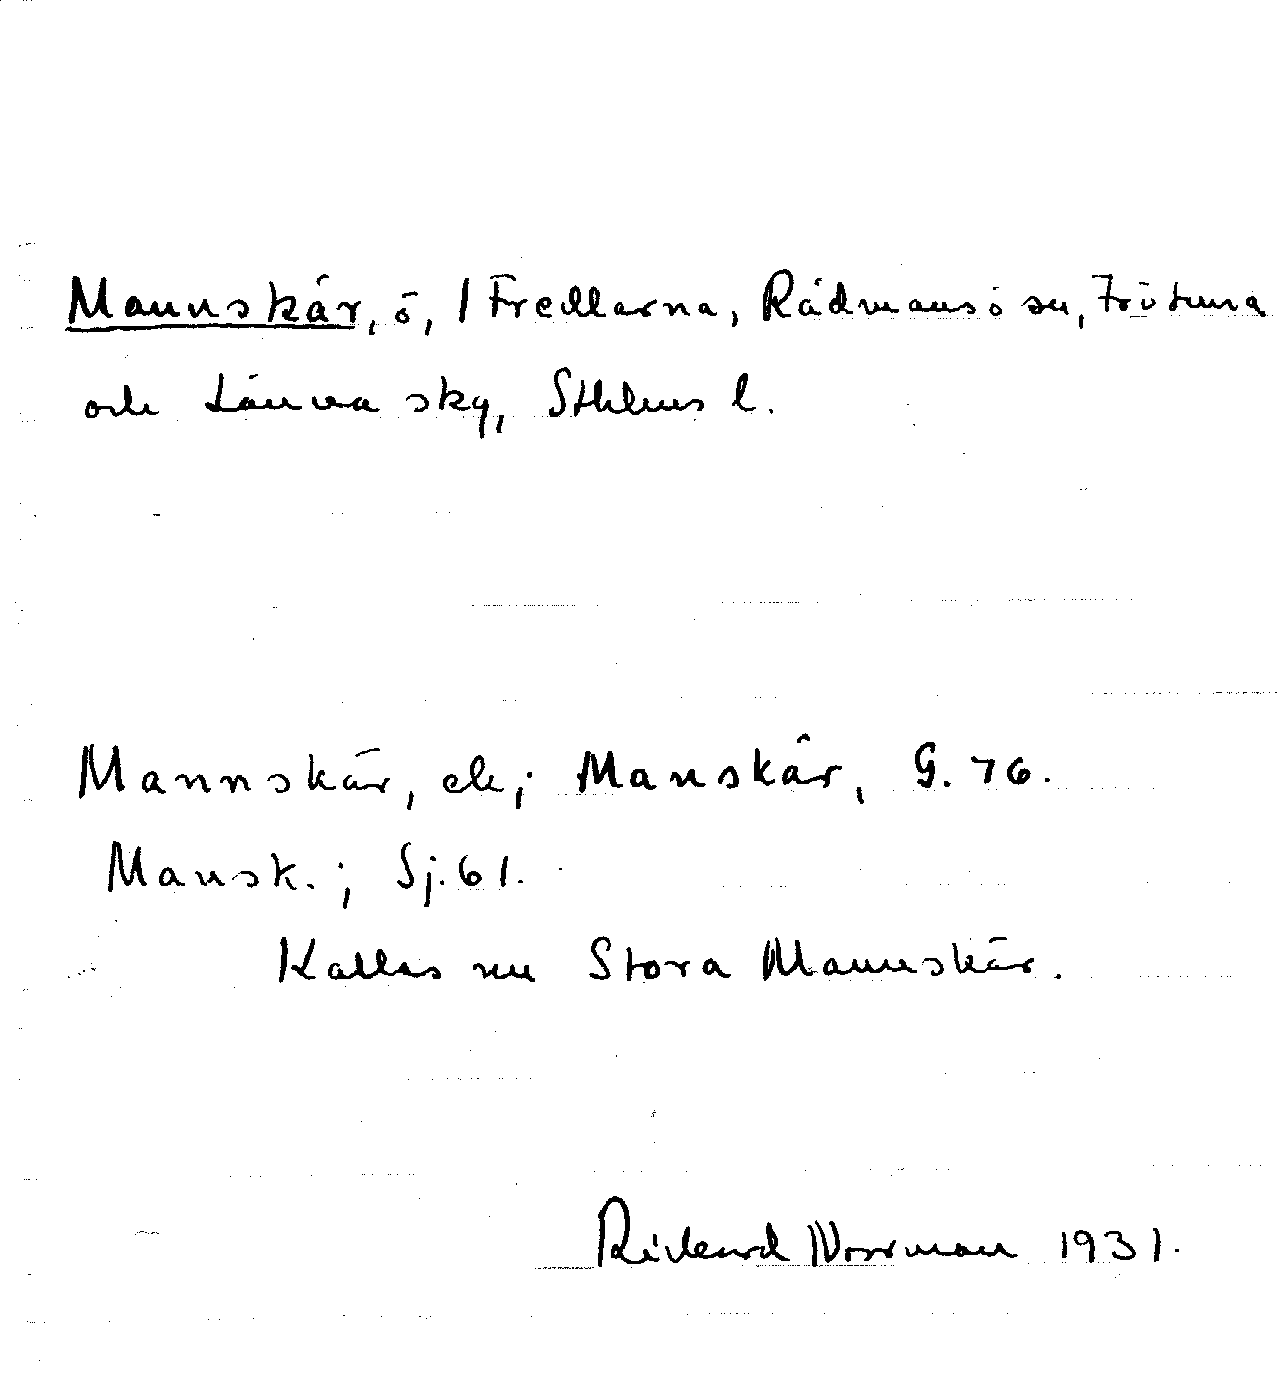 Mannskär, ö, I Fredlarna, Rådmansö sn, Frötuna
och Länna skg, Sthlms l.
Mannskär, ek; Manskär, G. 76.
Mansk.; Sj. 61.
Kallas nu Stora Mannskär.
Rickard Norrman 1931.